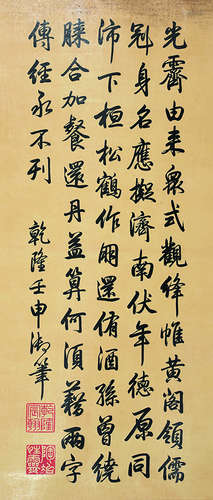 光霽由来眾式觀絳帷黃閣領儒
冠身名應擬濟南伏年德原同
沛下桓松鶴作朋還侑酒孫曾繞
膝合加餐還丹益算何須藉兩字
傳經永不刊
乾隆壬申御筆
乾隆宸翰